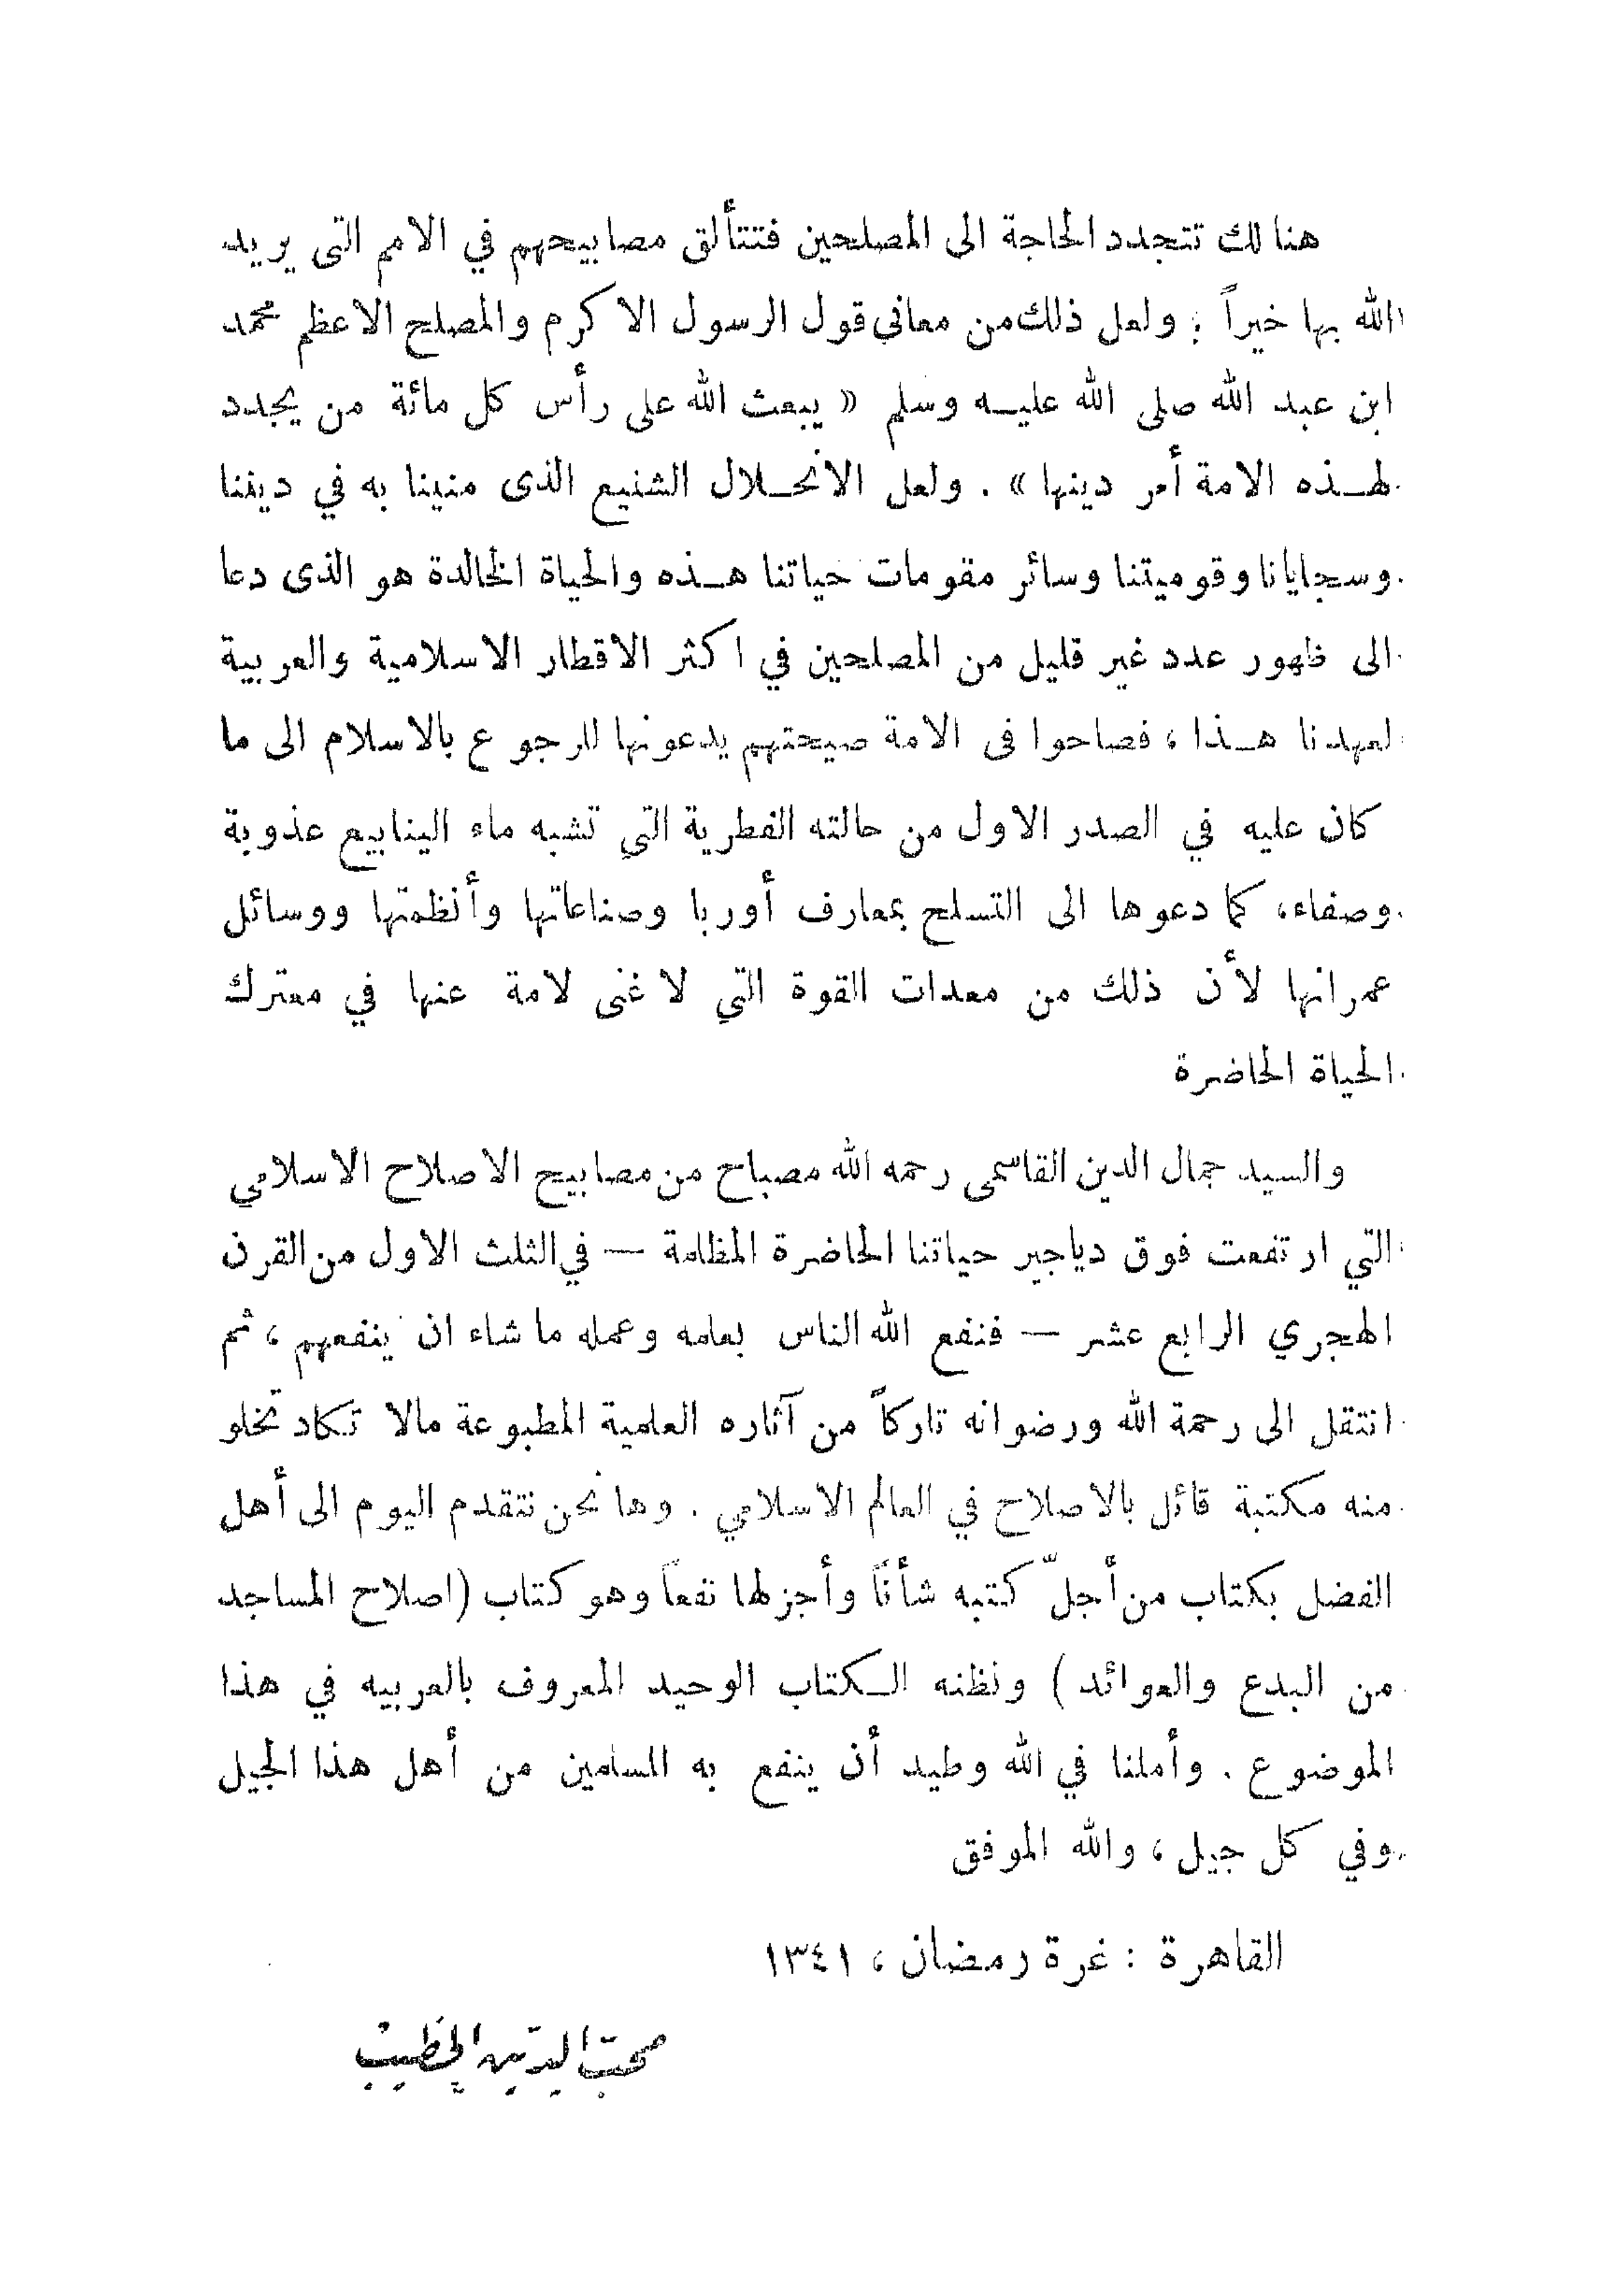 هنالك تتجدد الحاجة الى المصلحين فتتألق مصابيحهم في الامم التى يريد
الله بها خيراً : ولعل ذلك من معانى قول الرسول الاكرم والمصلح الاعظم محمد
ابن عبد الله صلى الله عليه وسلم « يبعث الله على رأس كل مائة من يجدد
لهذه الامة أمر دينها » . ولعل الانحلال الشنيع الذى منينا به في ديننا
وسجايانا وقوميتنا وسائر مقومات حياتنا هذه والحياة الخالدة هو الذى دعا
الى ظهور عدد غير قليل من المصلحين في اكثر الاقطار الاسلامية والعربية
لعهدنا هذا ، فصاحوا فى الامة صيحتهم يدعونها للرجوع بالاسلام الى ما
كان عليه في الصدر الاول من حالته الفطرية التي تشبه ماء الينابيع عذوبة
وصفاء، كما دعوها الى التسلح بمعارف أوربا وصناعاتها وأنظمتها ووسائل
عمرانها لأن ذلك من معدات القوة التي لا غنى لامة عنها في معترك
الحياة الحاضرة
والسيد جمال الدين القاسمى رحمه الله مصباح من مصابيح الاصلاح الاسلامي
التي ارتفعت فوق دياجير حياتنا الحاضرة المظلمة — في الثلث الاول من القرن
الهجري الرابع عشر — فنفع الله الناس بعلمه وعمله ما شاء ان ينفعهم ، ثم
انتقل الى رحمة الله ورضوانه تاركاً من آثاره العلمية المطبوعة مالا تكاد تخلو
منه مكتبة قائل بالاصلاح في العالم الاسلامي . وها نحن نتقدم اليوم الى أهل
الفضل بكتاب من أجلّ كتبه شأناً وأجزلها نفعاً وهو كتاب (اصلاح المساجد
من البدع والعوائد ) ونظنه الكتاب الوحيد المعروف بالعربيه في هذا
الموضوع . وأملنا في الله وطيد أن ينفع به المسلمين من أهل هذا الجيل
وفي كل جيل ، والله الموفق
القاهرة : غرة رمضان ، ١٣٤١
محب الدين الخطيب